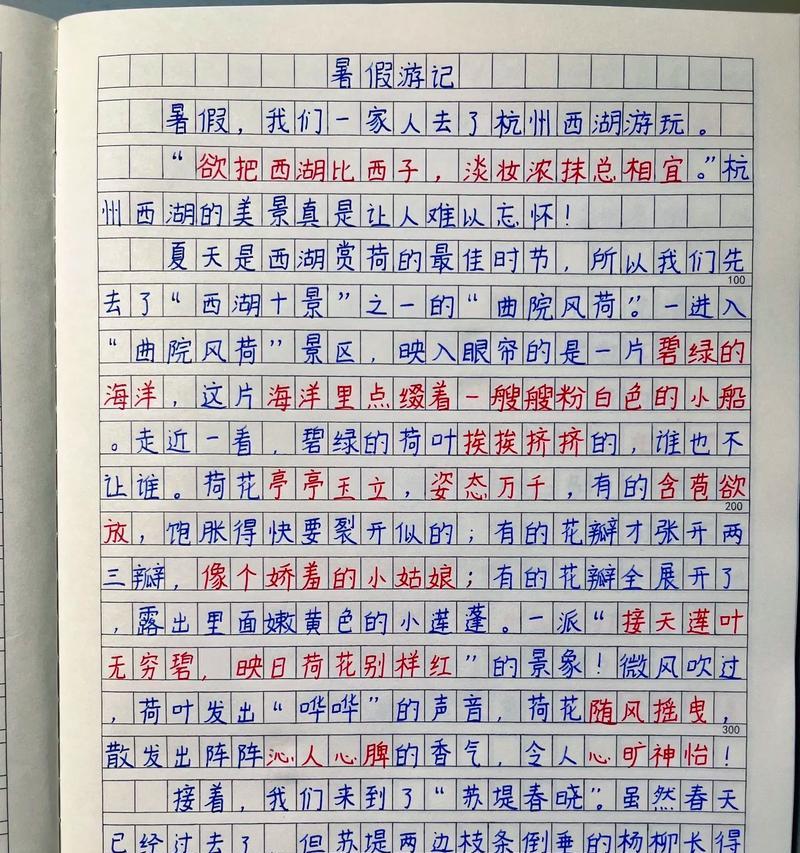 暑假游记
暑假，我们一家人去了杭州西湖游玩。
“欲把西湖比西子，淡妆浓抹总相宜。”杭
州西湖的美景真是让人难以忘怀！
夏天是西湖赏荷的最佳时节，所以我们先
100
去了“西湖十景”之一的“曲院风荷”。一进入
“曲院风荷”景区，映入眼帘的是一片碧绿的
海洋，这片海洋里点缀着一艘艘粉白色的小船
。走近一看，碧绿的荷叶挨挨挤挤的，谁也不
让谁。荷花亭亭玉立，姿态万千，有的含苞欲
200
放，饱胀得快要裂开似的；有的花瓣才张开两
三瓣，像个娇羞的小姑娘；有的花瓣全展开了
，露出里面嫩黄色的小莲蓬。一派“接天莲叶
无穷碧，映日荷花别样红”的景象！微风吹过
，荷叶发出“哗哗”的声音，荷花随风摇曳，
300
散发出阵阵沁人心脾的香气，令人心旷神怡！
接着，我们来到了“苏堤春晓”。虽然春天
已经过去了，但苏堤两边枝条倒垂的杨柳长得